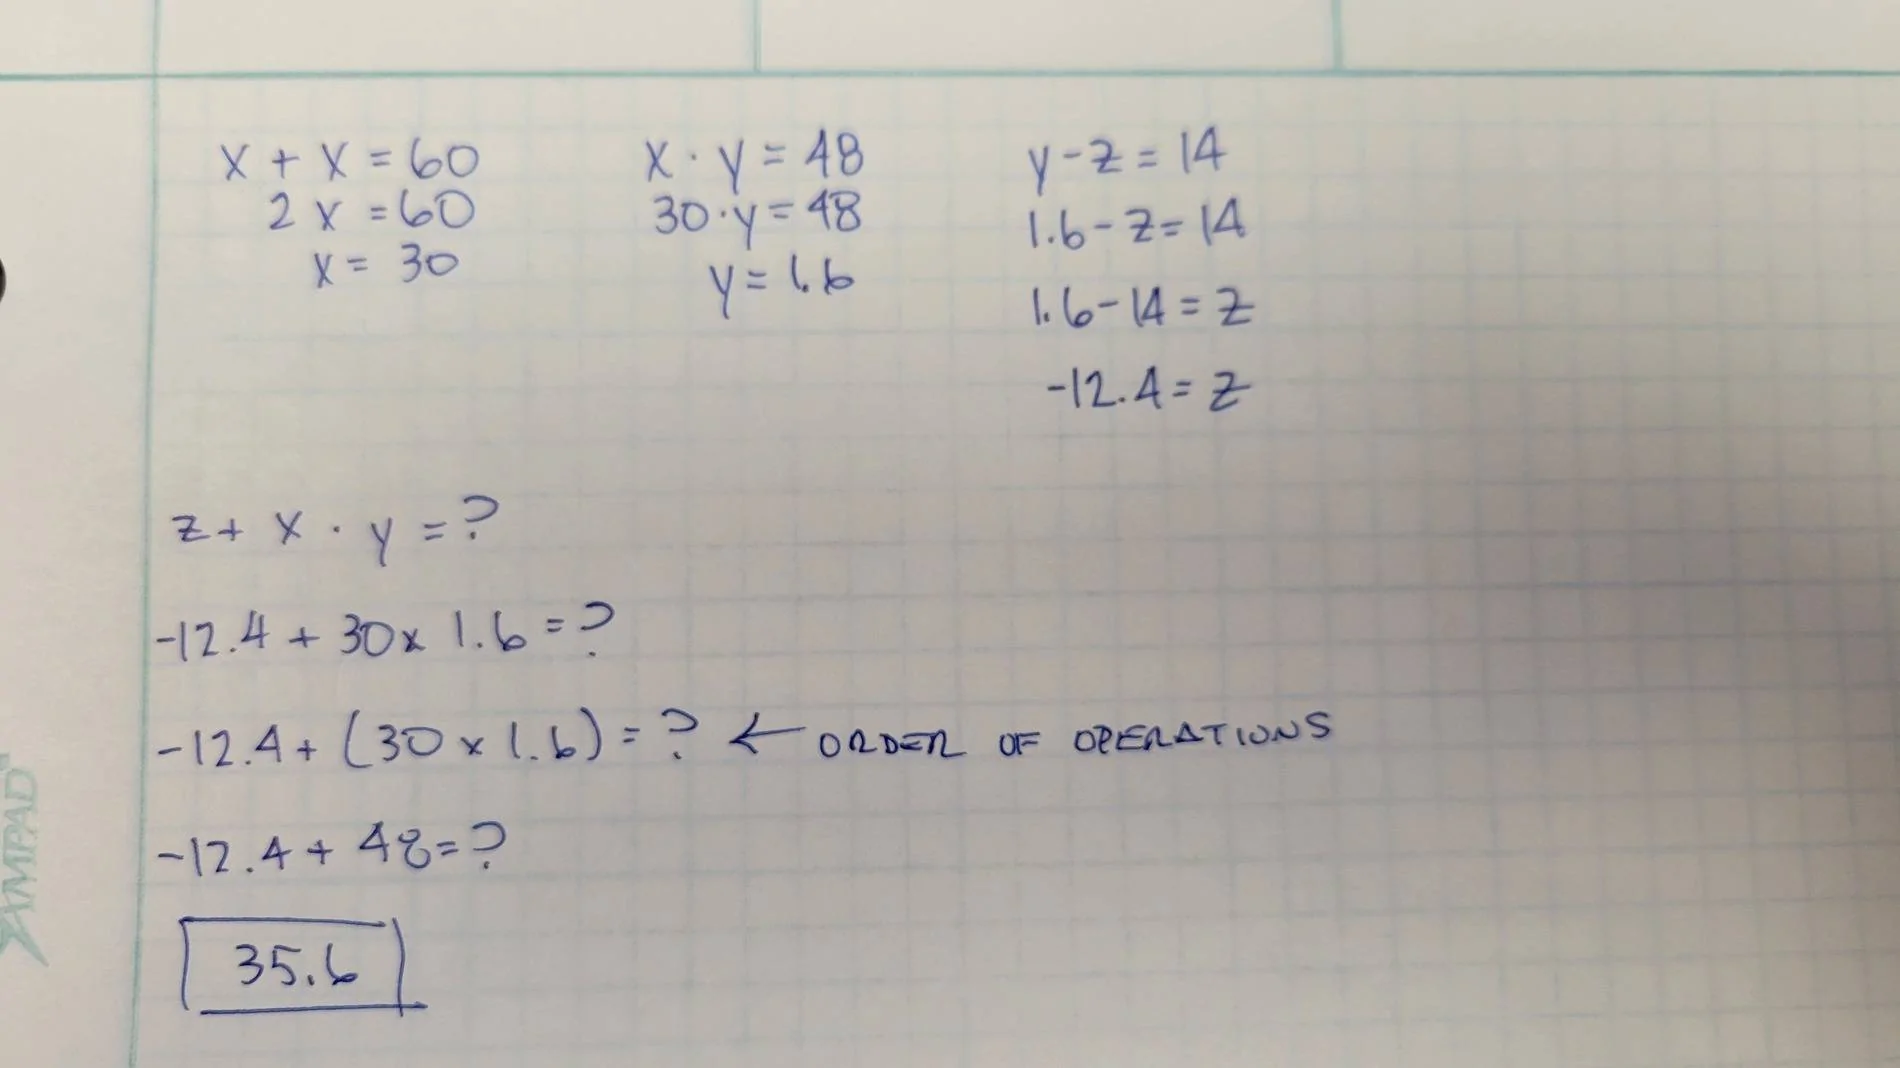 x + x = 60
2x = 60
x = 30
x · y = 48
30 · y = 48
y = 1.6
y - z = 14
1.6 - z = 14
1.6 - 14 = z
-12.4 = z
z + x · y = ?
-12.4 + 30 x 1.6 = ?
-12.4 + (30 x 1.6) = ? ← ORDER OF OPERATIONS
-12.4 + 48 = ?
35.6
AMPAD